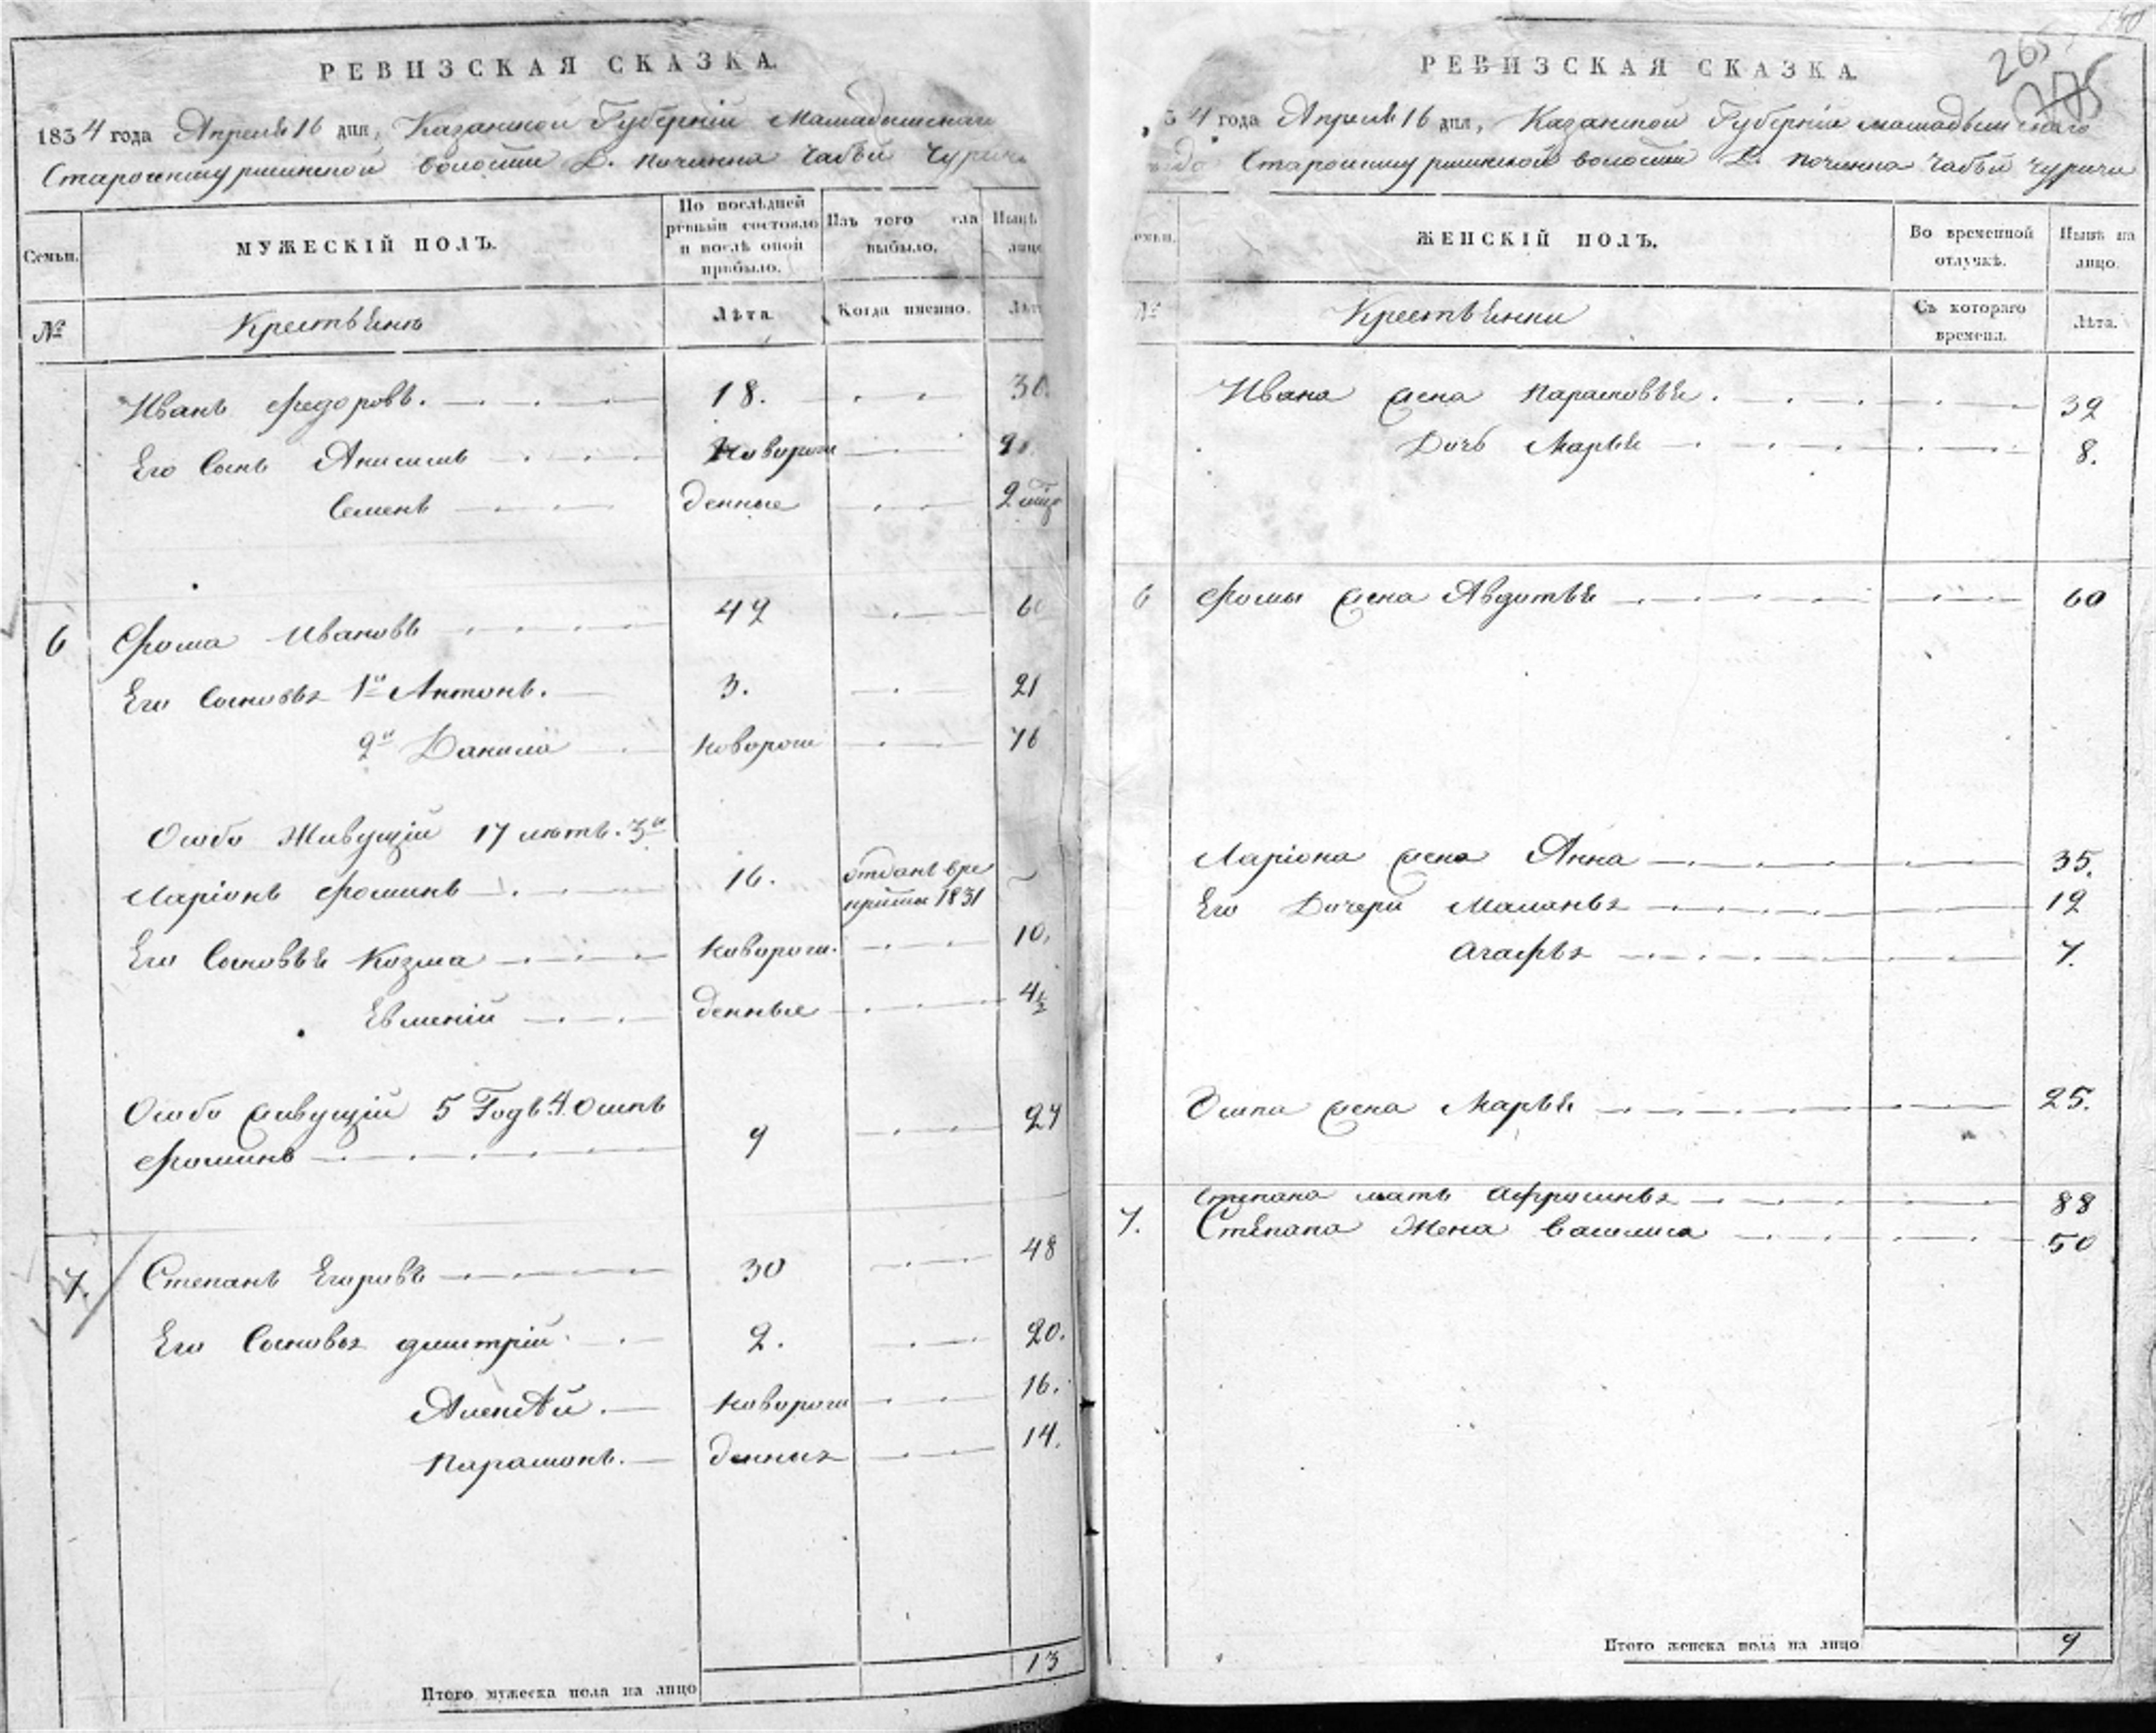 РЕВИЗСКАЯ СКАЗКА.
1834 года Апреля 16 дня, Казанской Губернiи Мамадышскаго
Староишурминской волости Д. починка Чабьи Чурчи
Семьи.
МУЖЕСКIЙ ПОЛЪ.
По послѣдней ревизiи состояло и послѣ оной прибыло.
Изъ того числа выбыло.
Нынѣ лицо
№
Крестьяне
Лѣта.
Когда именно.
Лѣта
Иванъ Федоровъ. 18. 36.
Его Сынъ Анисимъ новорож
Семенъ денные 2
6 Фома Ивановъ 42 60
Его Сыновья 1й Антонъ. 3. 21
2й Данило новорож 16
Особо Живущiй 17 лѣтъ. 3й
Ларiонъ Фоминъ 16. отданъ вре
круты 1831
Его Сыновья Козма новорож. 10.
Евменiй денные 4½
Особо живущiй 5 Годъ 4. Осипъ
Фоминъ 9 27
7. Степанъ Егоровъ 30 48
Его Сыновья димитрiй 2. 20.
Алексѣй. новорож 16.
Парамонъ. денных 14.
Итого мужеска пола на лицо 13
265
РЕВИЗСКАЯ СКАЗКА.
34 года Апреля 16 дня, Казанской Губернiи мамадышскаго
Староишурминской волости Д. починка Чабьи Чурчи
семьи.
ЖЕНСКIЙ ПОЛЪ.
Во временной отлучкѣ.
Нынѣ на лицо.
№
Крестьянки
Съ котораго времени.
Лѣта.
Ивана жена Парасковья. 32
Дочь Марья 8.
6 Фомы жена Авдотья 60
Ларiона жена Анна 35.
Его Дочери Маланья 12
Агафья 7.
Осипа жена Марья 25.
Степана мать Афросинья 88
7. Степана Жена Василиса 50
Итого женска пола на лицо 9